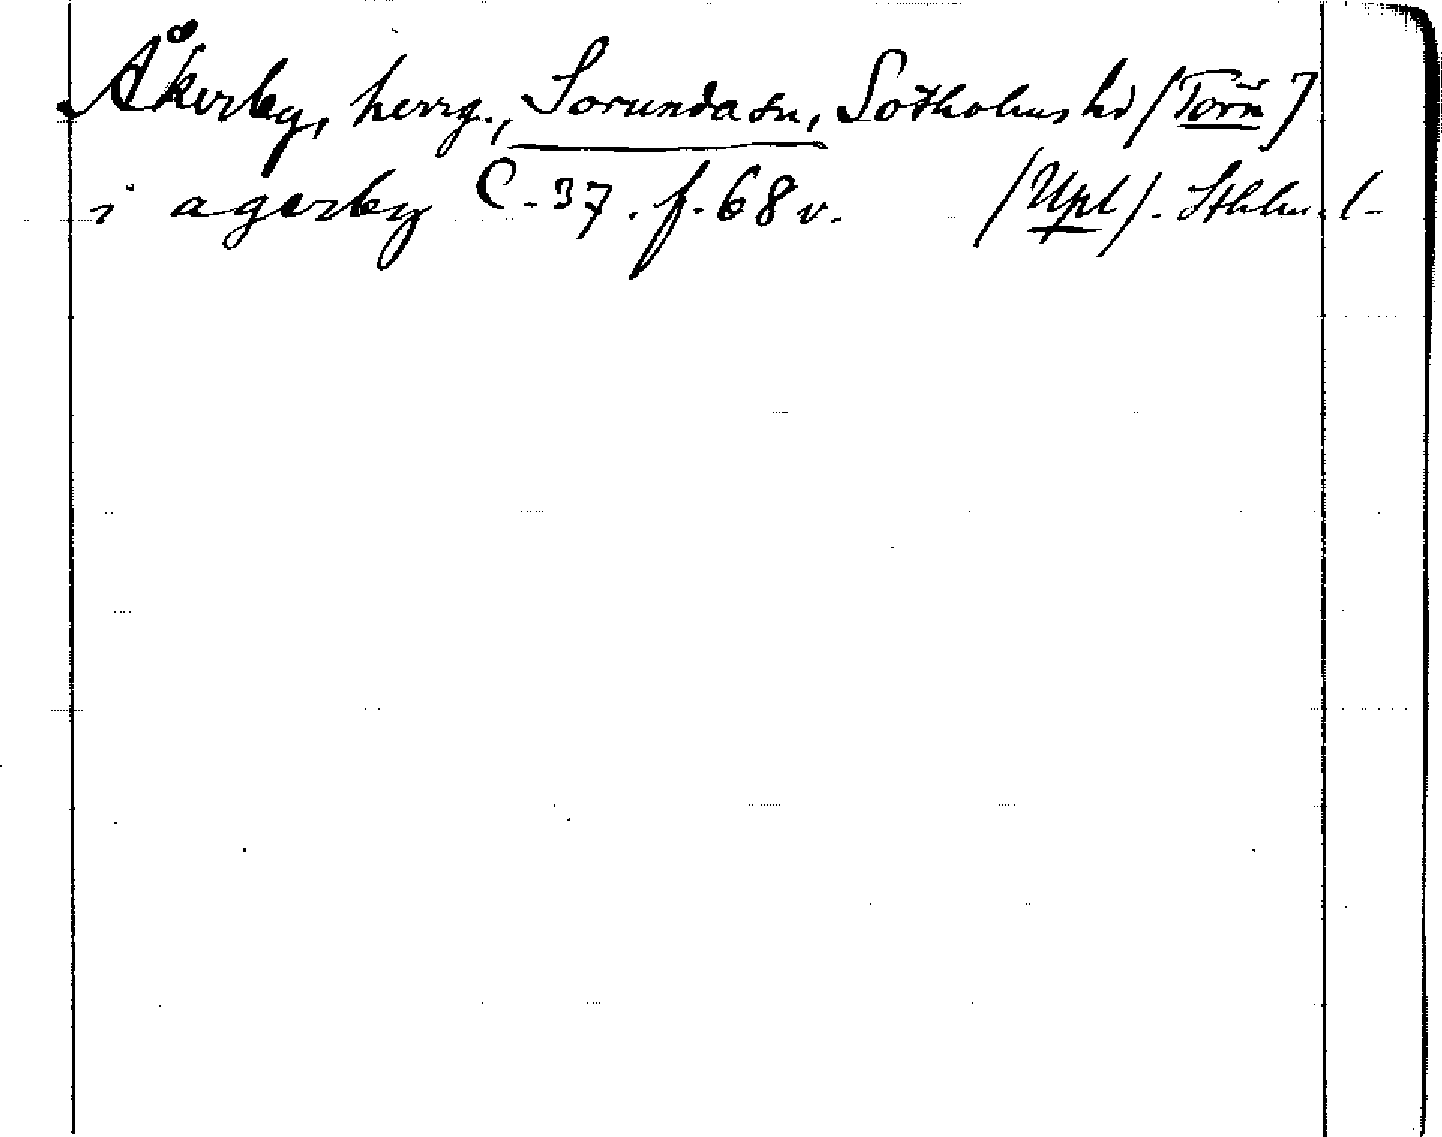 Åkerby, herrg., Sorunda sn, Sotholms hd [Törn]
i agerby C. 37. f. 68 v. (Upl). Sthlms l.